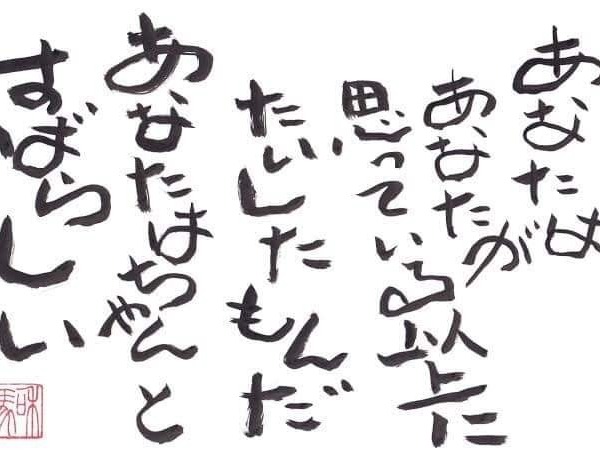 あなたは
あなたが
思っている以上に
たいした
もんだ
あなたはちゃんと
すばらしい